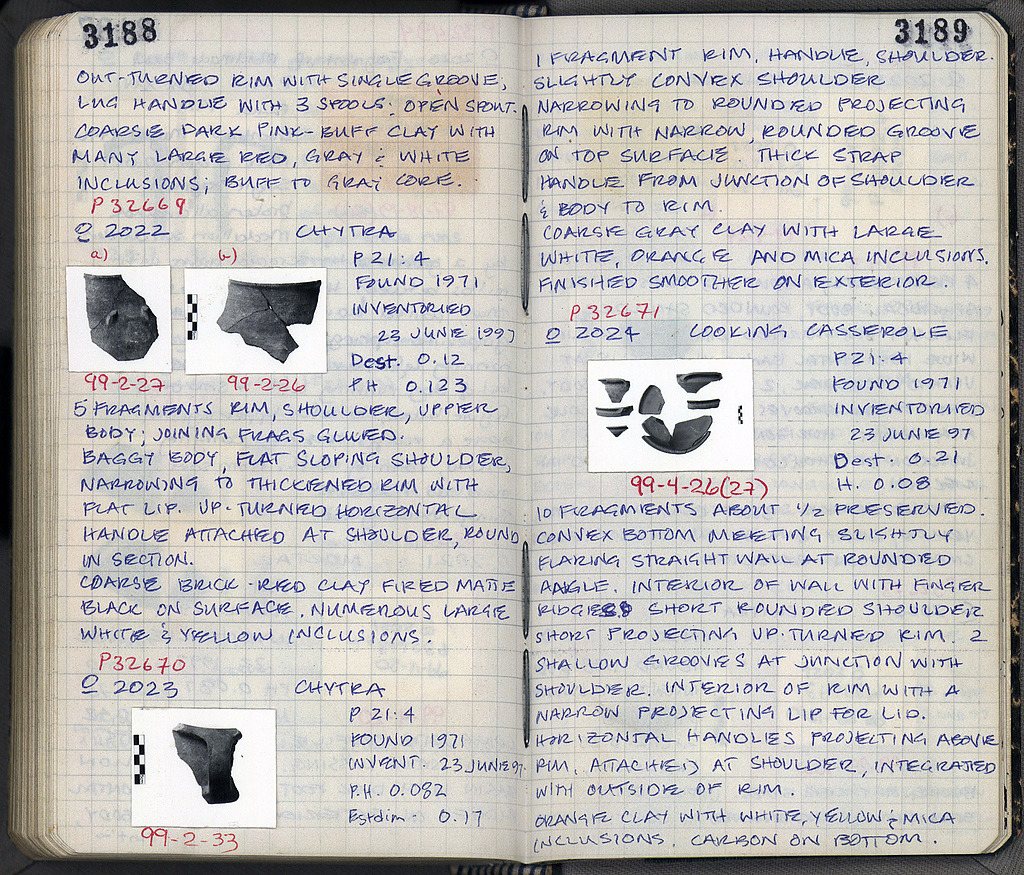 3188
OUT-TURNED RIM WITH SINGLE GROOVE,
LUG HANDLE WITH 3 SPOOLS. OPEN SPOUT.
COARSE DARK PINK-BUFF CLAY WITH
MANY LARGE RED, GRAY & WHITE
INCLUSIONS; BUFF TO GRAY CORE.
P 32669
O 2022 CHYTRA
a) b)
P 21:4
FOUND 1971
INVENTORIED
23 JUNE 1997
Dest. 0.12
PH 0.123
99-2-27 99-2-26
5 FRAGMENTS RIM, SHOULDER, UPPER
BODY; JOINING FRAGS GLUED.
BAGGY BODY, FLAT SLOPING SHOULDER,
NARROWING TO THICKENED RIM WITH
FLAT LIP. UP-TURNED HORIZONTAL
HANDLE ATTACHED AT SHOULDER, ROUND
IN SECTION.
COARSE BRICK-RED CLAY FIRED MATTE
BLACK ON SURFACE. NUMEROUS LARGE
WHITE & YELLOW INCLUSIONS.
P32670
O 2023 CHYTRA
P 21:4
FOUND 1971
INVENT. 23 JUNE 97.
P.H. 0.082
Estdim. 0.17
99-2-33
3189
1 FRAGMENT RIM, HANDLE, SHOULDER.
SLIGHTLY CONVEX SHOULDER
NARROWING TO ROUNDED PROJECTING
RIM WITH NARROW, ROUNDED GROOVE
ON TOP SURFACE. THICK STRAP
HANDLE FROM JUNCTION OF SHOULDER
& BODY TO RIM.
COARSE GRAY CLAY WITH LARGE
WHITE, ORANGE AND MICA INCLUSIONS.
FINISHED SMOOTHER ON EXTERIOR.
P 32671
O 2024 COOKING CASSEROLE
P 21:4
FOUND 1971
INVENTORIED
23 JUNE 97
Dest. 0.21
H. 0.08
99-4-26(27)
10 FRAGMENTS ABOUT 1/2 PRESERVED.
CONVEX BOTTOM MEETING SLIGHTLY
FLARING STRAIGHT WALL AT ROUNDED
ANGLE. INTERIOR OF WALL WITH FINGER
RIDGES SHORT ROUNDED SHOULDER
SHORT PROJECTING UP-TURNED RIM. 2
SHALLOW GROOVES AT JUNCTION WITH
SHOULDER. INTERIOR OF RIM WITH A
NARROW PROJECTING LIP FOR LID.
HORIZONTAL HANDLES PROJECTING ABOVE
RIM, ATTACHED AT SHOULDER, INTEGRATED
WITH OUTSIDE OF RIM.
ORANGE CLAY WITH WHITE, YELLOW & MICA
INCLUSIONS. CARBON ON BOTTOM.